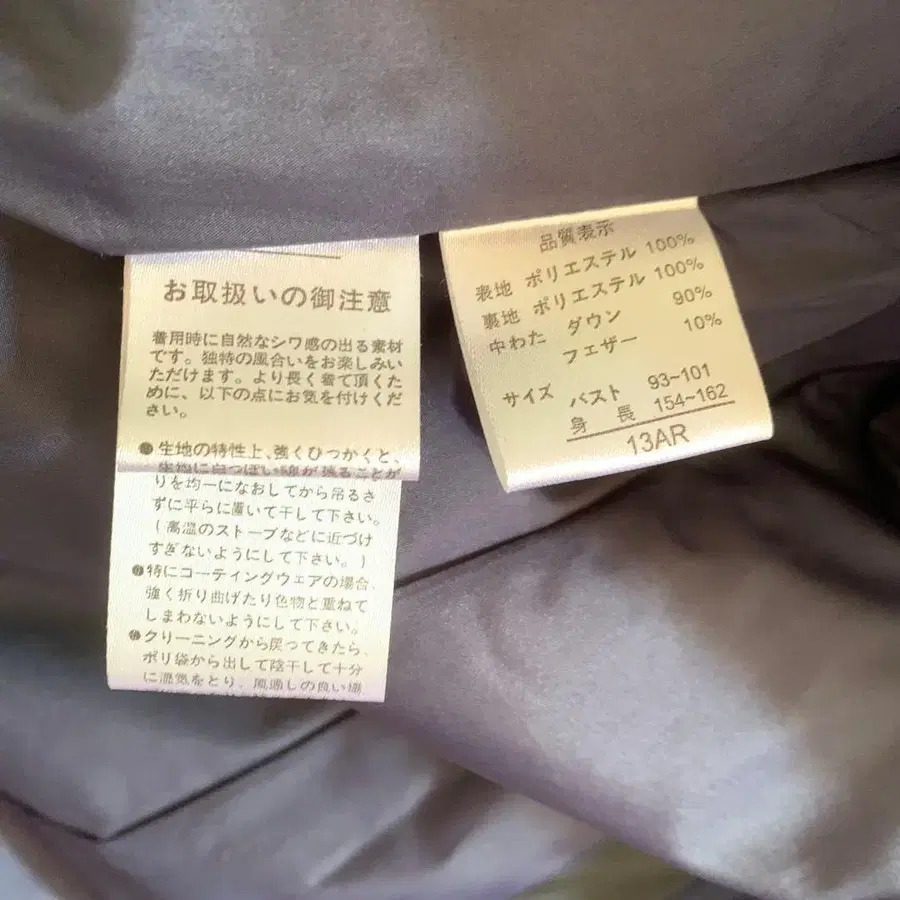 お取扱いの御注意
着用時に自然なシワ感の出る素材
です。独特の風合いをお楽しみい
ただけます。より長く着て頂くた
めに、以下の点にお気を付けくだ
さい。
●生地の特性上、強くひっかくと、
生地に白っぽい線が残ることが
りを均一になおしてから吊るさ
ずに平らに置いて干して下さい。
(高温のストーブなどに近づけ
すぎないようにして下さい。)
●特にコーティングウェアの場合、
強く折り曲げたり色物と重ねて
しまわないようにして下さい。
●クリーニングから戻ってきたら、
ポリ袋から出して陰干して十分
に湿気をとり、風通しの良い
品質表示
表地 ポリエステル 100%
裏地 ポリエステル 100%
中わた ダウン 90%
フェザー 10%
サイズ バスト 93~101
身長 154~162
13AR